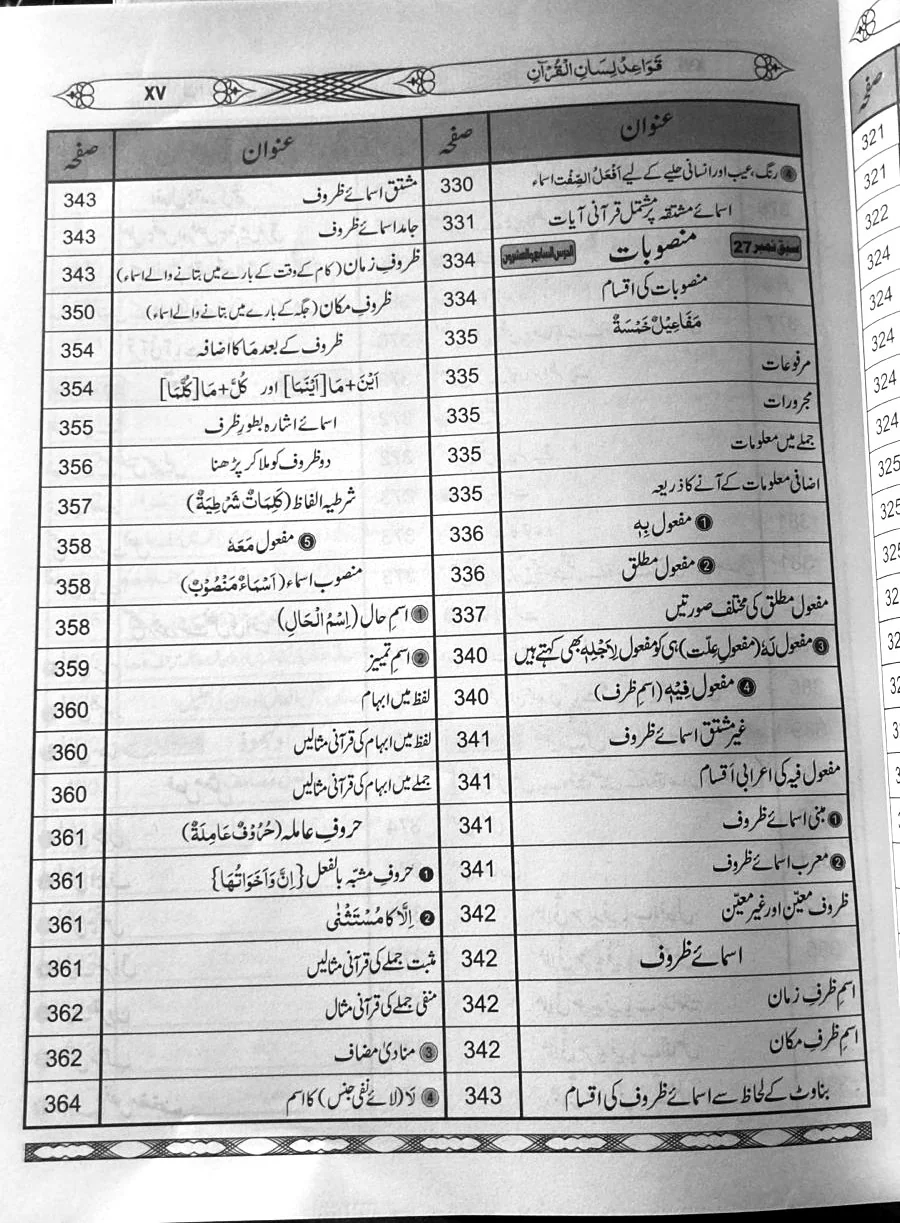 XV قَوَاعِدُ لِسَانِ الْقُرْآنِ
عنوان صفحہ
④ رنگ، عیب اور انسانی حلیے کے لیے اَفْعَلُ الصِّفَت اسماء 330
اسمائے مشتقہ پر مشتمل قرآنی آیات 331
سبق نمبر 27 منصوبات الدرس السابع والعشرون 334
منصوبات کی اقسام 334
مَفَاعِيْلُ خَمْسَةٌ 335
مرفوعات 335
مجرورات 335
جملے میں معلومات 335
اضافی معلومات کے آنے کا ذریعہ 335
❶ مفعول بِہٖ 336
❷ مفعول مطلق 336
مفعول مطلق کی مختلف صورتیں 337
❸ مفعول لَہٗ (مفعولِ عِلّت) ہی کو مفعول لِاَجْلِہٖ بھی کہتے ہیں 340
❹ مفعول فِیْہِ (اسمِ ظرف) 340
غیر مشتق اسمائے ظروف 341
مفعول فیہ کی اعرابی اَقسام 341
❶ مبنی اسمائے ظروف 341
❷ معرب اسمائے ظروف 341
ظروف معیّن اور غیر معیّن 342
اسمائے ظروف 342
اسمِ ظرفِ زمان 342
اسمِ ظرف مکان 342
بناوٹ کے لحاظ سے اسمائے ظروف کی اقسام 343
عنوان صفحہ
مشتق اسمائے ظروف 343
جامد اسمائے ظروف 343
ظروفِ زمان (کام کے وقت کے بارے میں بتانے والے اسماء) 343
ظروفِ مکان (جگہ کے بارے میں بتانے والے اسماء) 350
ظروف کے بعد مَا کا اضافہ 354
اَیْنَ+مَا[اَیْنَمَا] اور کُلَّ+مَا[کُلَّمَا] 354
اسمائے اشارہ بطورِ ظرف 355
دو ظروف کو ملا کر پڑھنا 356
شرطیہ الفاظ (کَلِمَاتٌ شَرْطِیَةٌ) 357
❺ مفعول مَعَہٗ 358
منصوب اسماء (اَسْمَاءٌ مَنْصُوْبٌ) 358
① اسمِ حال (اِسْمُ الْحَالِ) 358
② اسمِ تمییز 359
لفظ میں ابہام 360
لفظ میں ابہام کی قرآنی مثالیں 360
جملے میں ابہام کی قرآنی مثالیں 360
حروفِ عاملہ (حُرُوْفٌ عَامِلَةٌ) 361
❶ حروفِ مشبّہ بالفعل {اِنَّ وَاَخَوَاتُهَا} 361
❷ اِلَّا کا مُسْتَثْنٰی 361
مثبت جملے کی قرآنی مثالیں 361
منفی جملے کی قرآنی مثال 362
③ منادیٰ مضاف 362
④ لَا (لائے نفی جنس) کا اسم 364
صفحہ
321
321
322
324
324
324
324
324
325